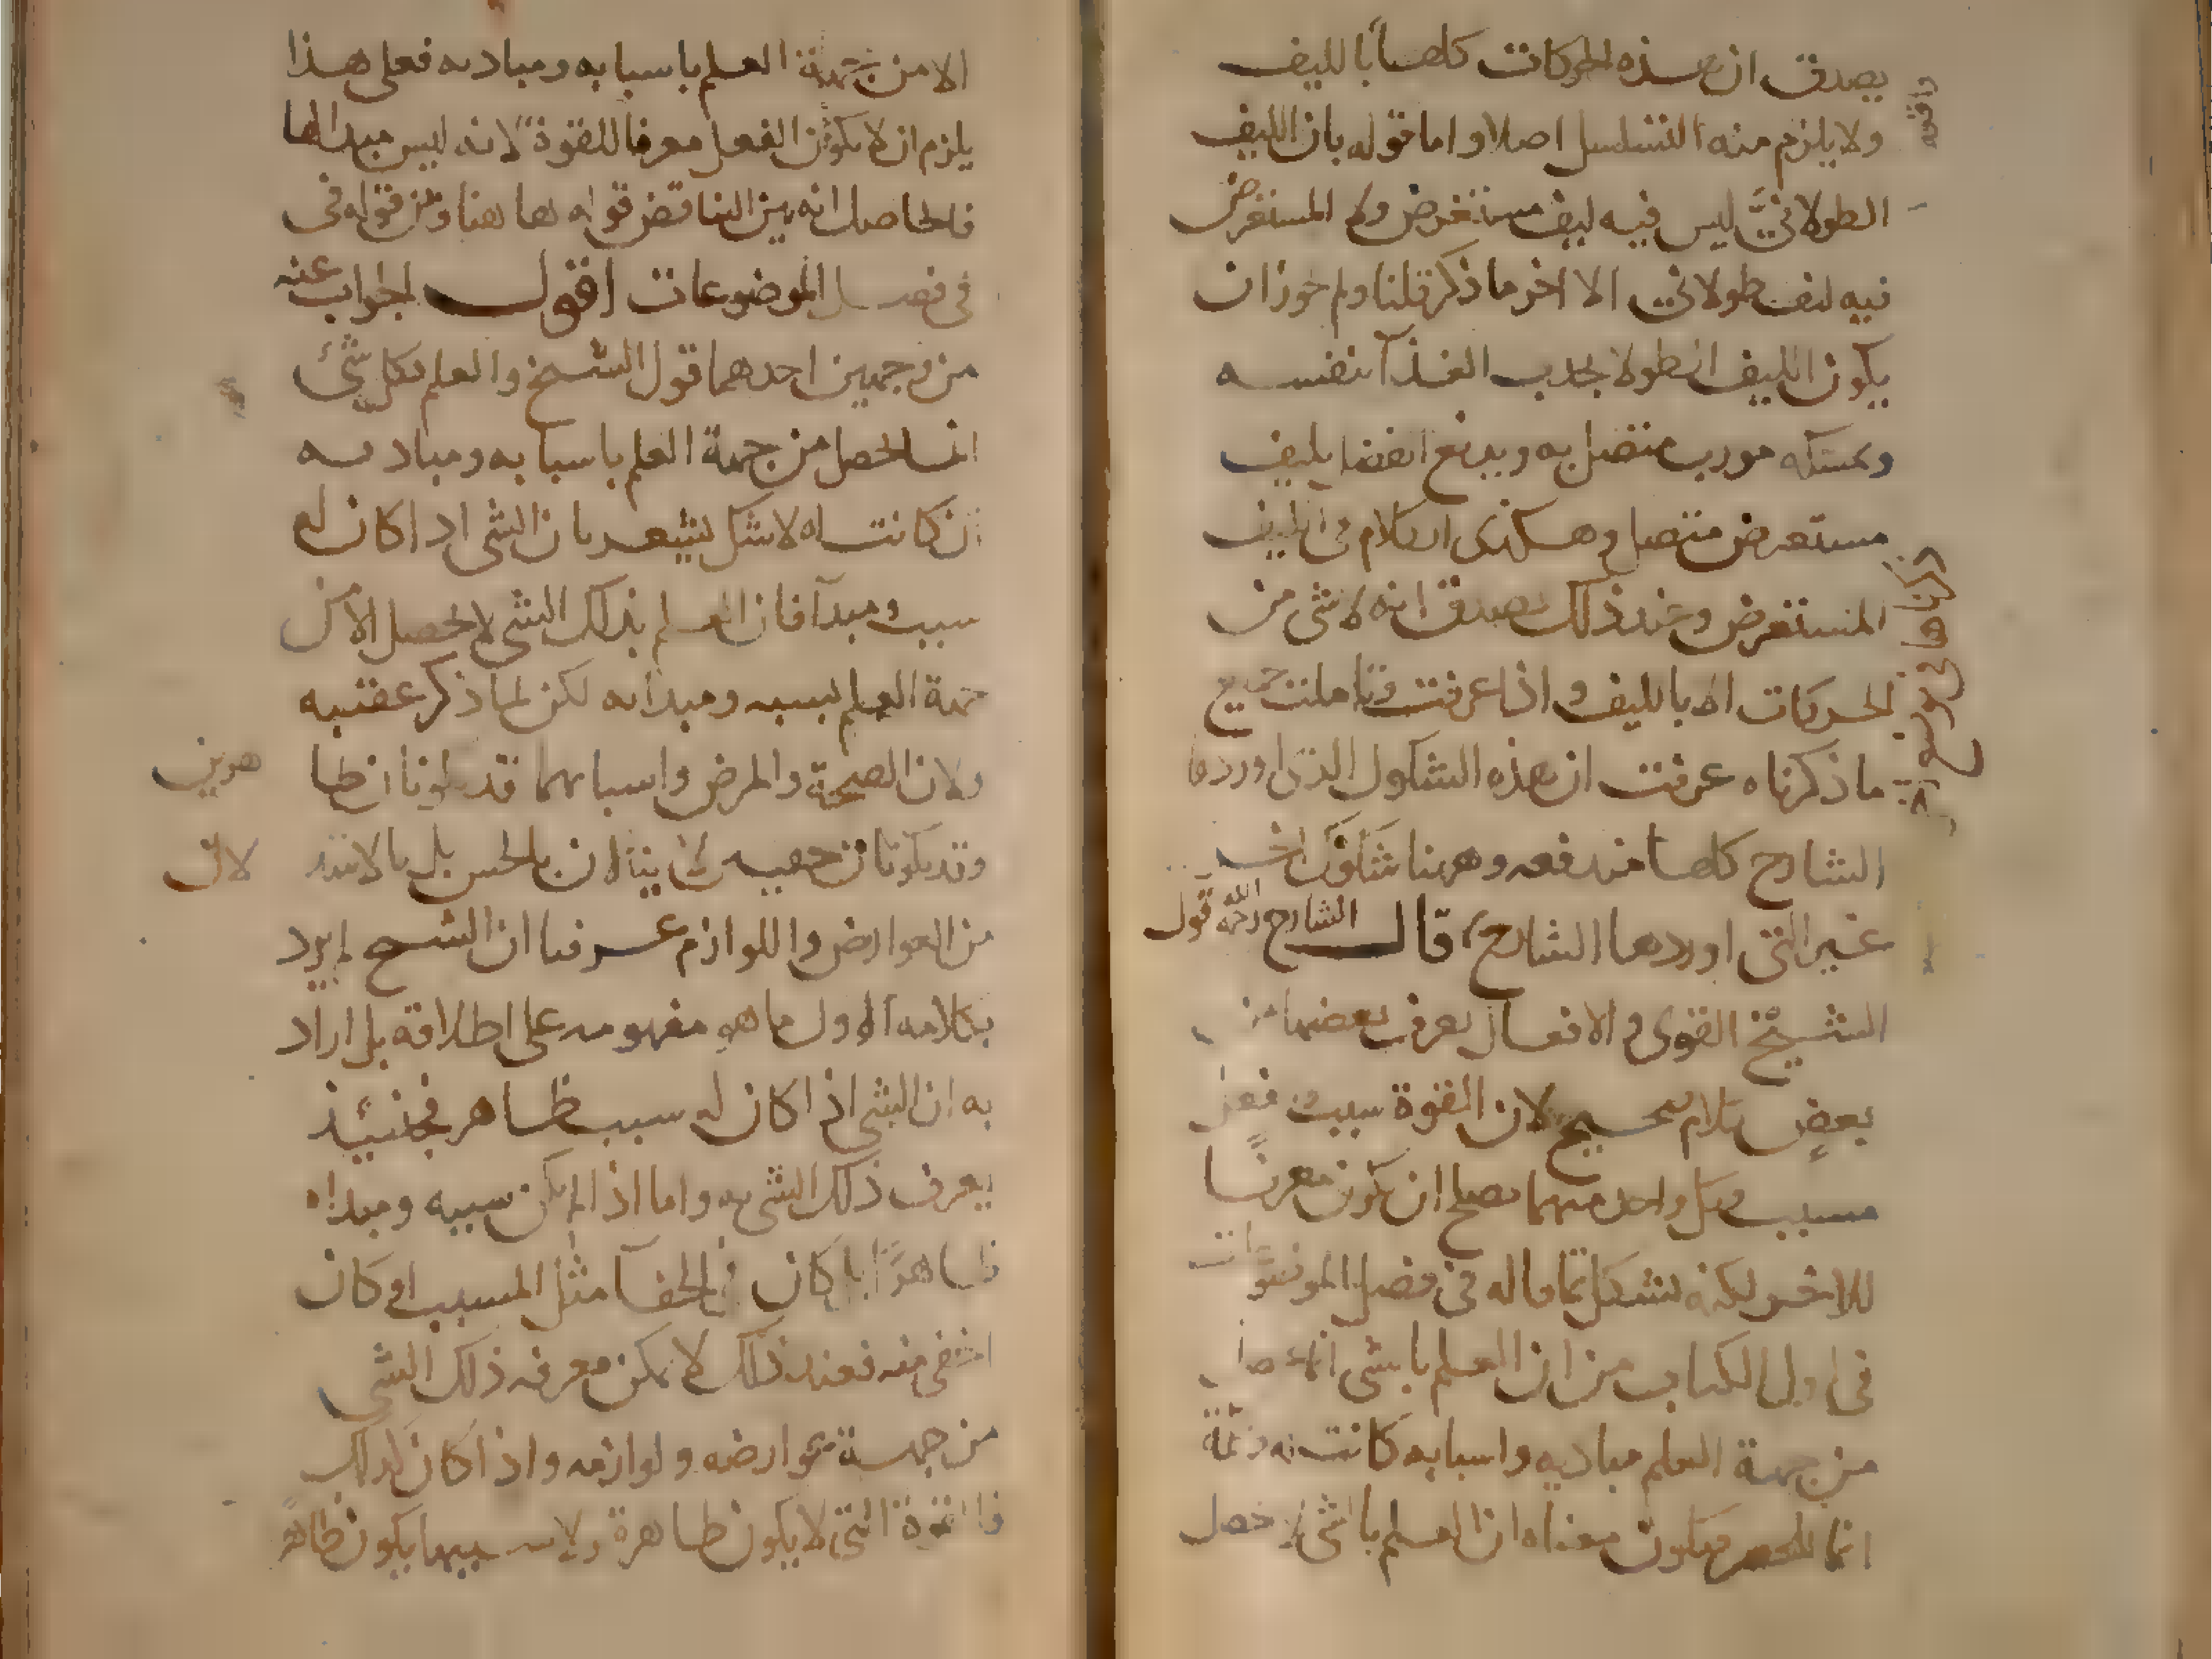 يصدق ان هذه الحركات كلها بالليف
ولا يلزم منه التسلسل اصلا واما قوله بان الليف
الطولاني ليس فيه ليف مستعرض ولا المستعرض
فيه ليف طولاني الا اخر ما ذكر قلنا ولم جوز ان
يكون الليف الطولا يجذب الغذآ بنفسه
ويمسكه مورب متصل به ويدفع ايضا بليف
مستعرض متصل وهكذى الكلام في الليف
المستعرض وعند ذلك يصدق انه لا شى من
الحركات الا بالليف واذا عرفت وتاملت جميع
ما ذكرناه عرفت ان هذه الشكوك الذى اوردها
الشارح كلها مندفعه وههنا شكوك اخر
غير التى اوردها الشارح قال الشارح رحمه الله قول
الشيخ القوى والافعال يعرف بعضها من
بعض كلام صحيح لان القوة سبب والفعل
مسبب وكل واحد منهما يصلح ان يكون معرفا
للاخر لكنه يشكل بما قاله فى فصل الموضوعات
فى اول الكتاب من ان العلم بالشى انما يحصل
من جهة العلم مباديه واسبابه كانت له وكلمة
انما للحصر فيكون معناه ان العلم بالشى لا يحصل
الا من جهة العلم باسبابه ومباديه فعلى هذا
يلزم ان لا يكون الفعل معرفا للقوة لانه ليس مبدا لها
فالحاصل انه بين التناقض قوله ها هنا وبين قوله فى
فى فصل الموضوعات اقول الجواب عنه
من وجهين احدهما قول الشيخ والعلم بكل شئ
انما يحصل من جهة العلم باسبابه ومباديه
ان كانت له لا شك يشعر بان الشى اذا كان له
سبب ومبدآ فان العلم بذلك الشى لا يحصل الا من
جهة العلم بسببه ومبداه لكن لما ذكر عقيبه
ولان الصحة والمرض واسبابهما قد يكونان ظا
هرين
وقد يكونان خفيين لا ينالان بالحس بل بالاستد
لال
من العوارض واللوازم عرفنا ان الشيخ لم يرد
بكلامه الاول ما هو مفهومه على اطلاقه بل اراد
به ان الشى اذا كان له سبب ظاهر فحينئذ
يعرف ذلك الشى به واما اذا لم يكن سببه ومبداه
ظاهرا بل كان فى الخفآ مثل المسبب او كان
اخفى منه فعند ذلك لا يمكن معرفه ذلك الشى
من جهة عوارضه ولوازمه واذا كان كذلك
فالقوة التى لا يكون ظاهرة ولا سببها يكون ظاهر